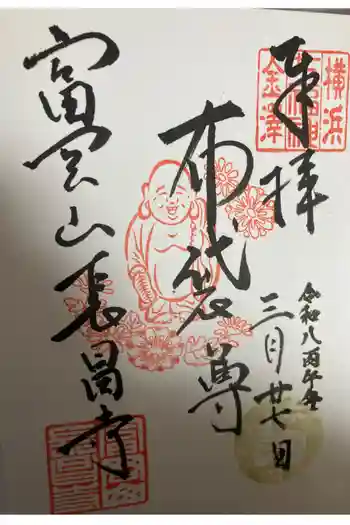 奉拝
横浜
金澤
令和八丙午年
三月廿七日
布袋尊
富雲山長昌寺